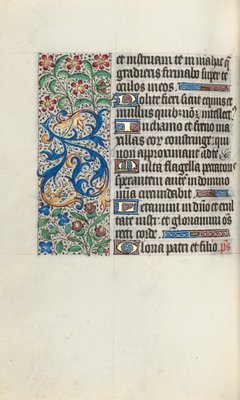 et instruam te in via hac q
gradieris firmabo super te
oculos meos.
Nolite fieri sicut equus et
mulus quibus no est intellect
In chamo et freno ma
xillas eor constringe qui
non approximant ad te.
Multa flagella peccatoris
sperantem autē in domino
mīa circundabit.
Letamini in dn̄o et exul
tate iusti et gloriamini os
recti corde.
Gloria patri et filio. ps